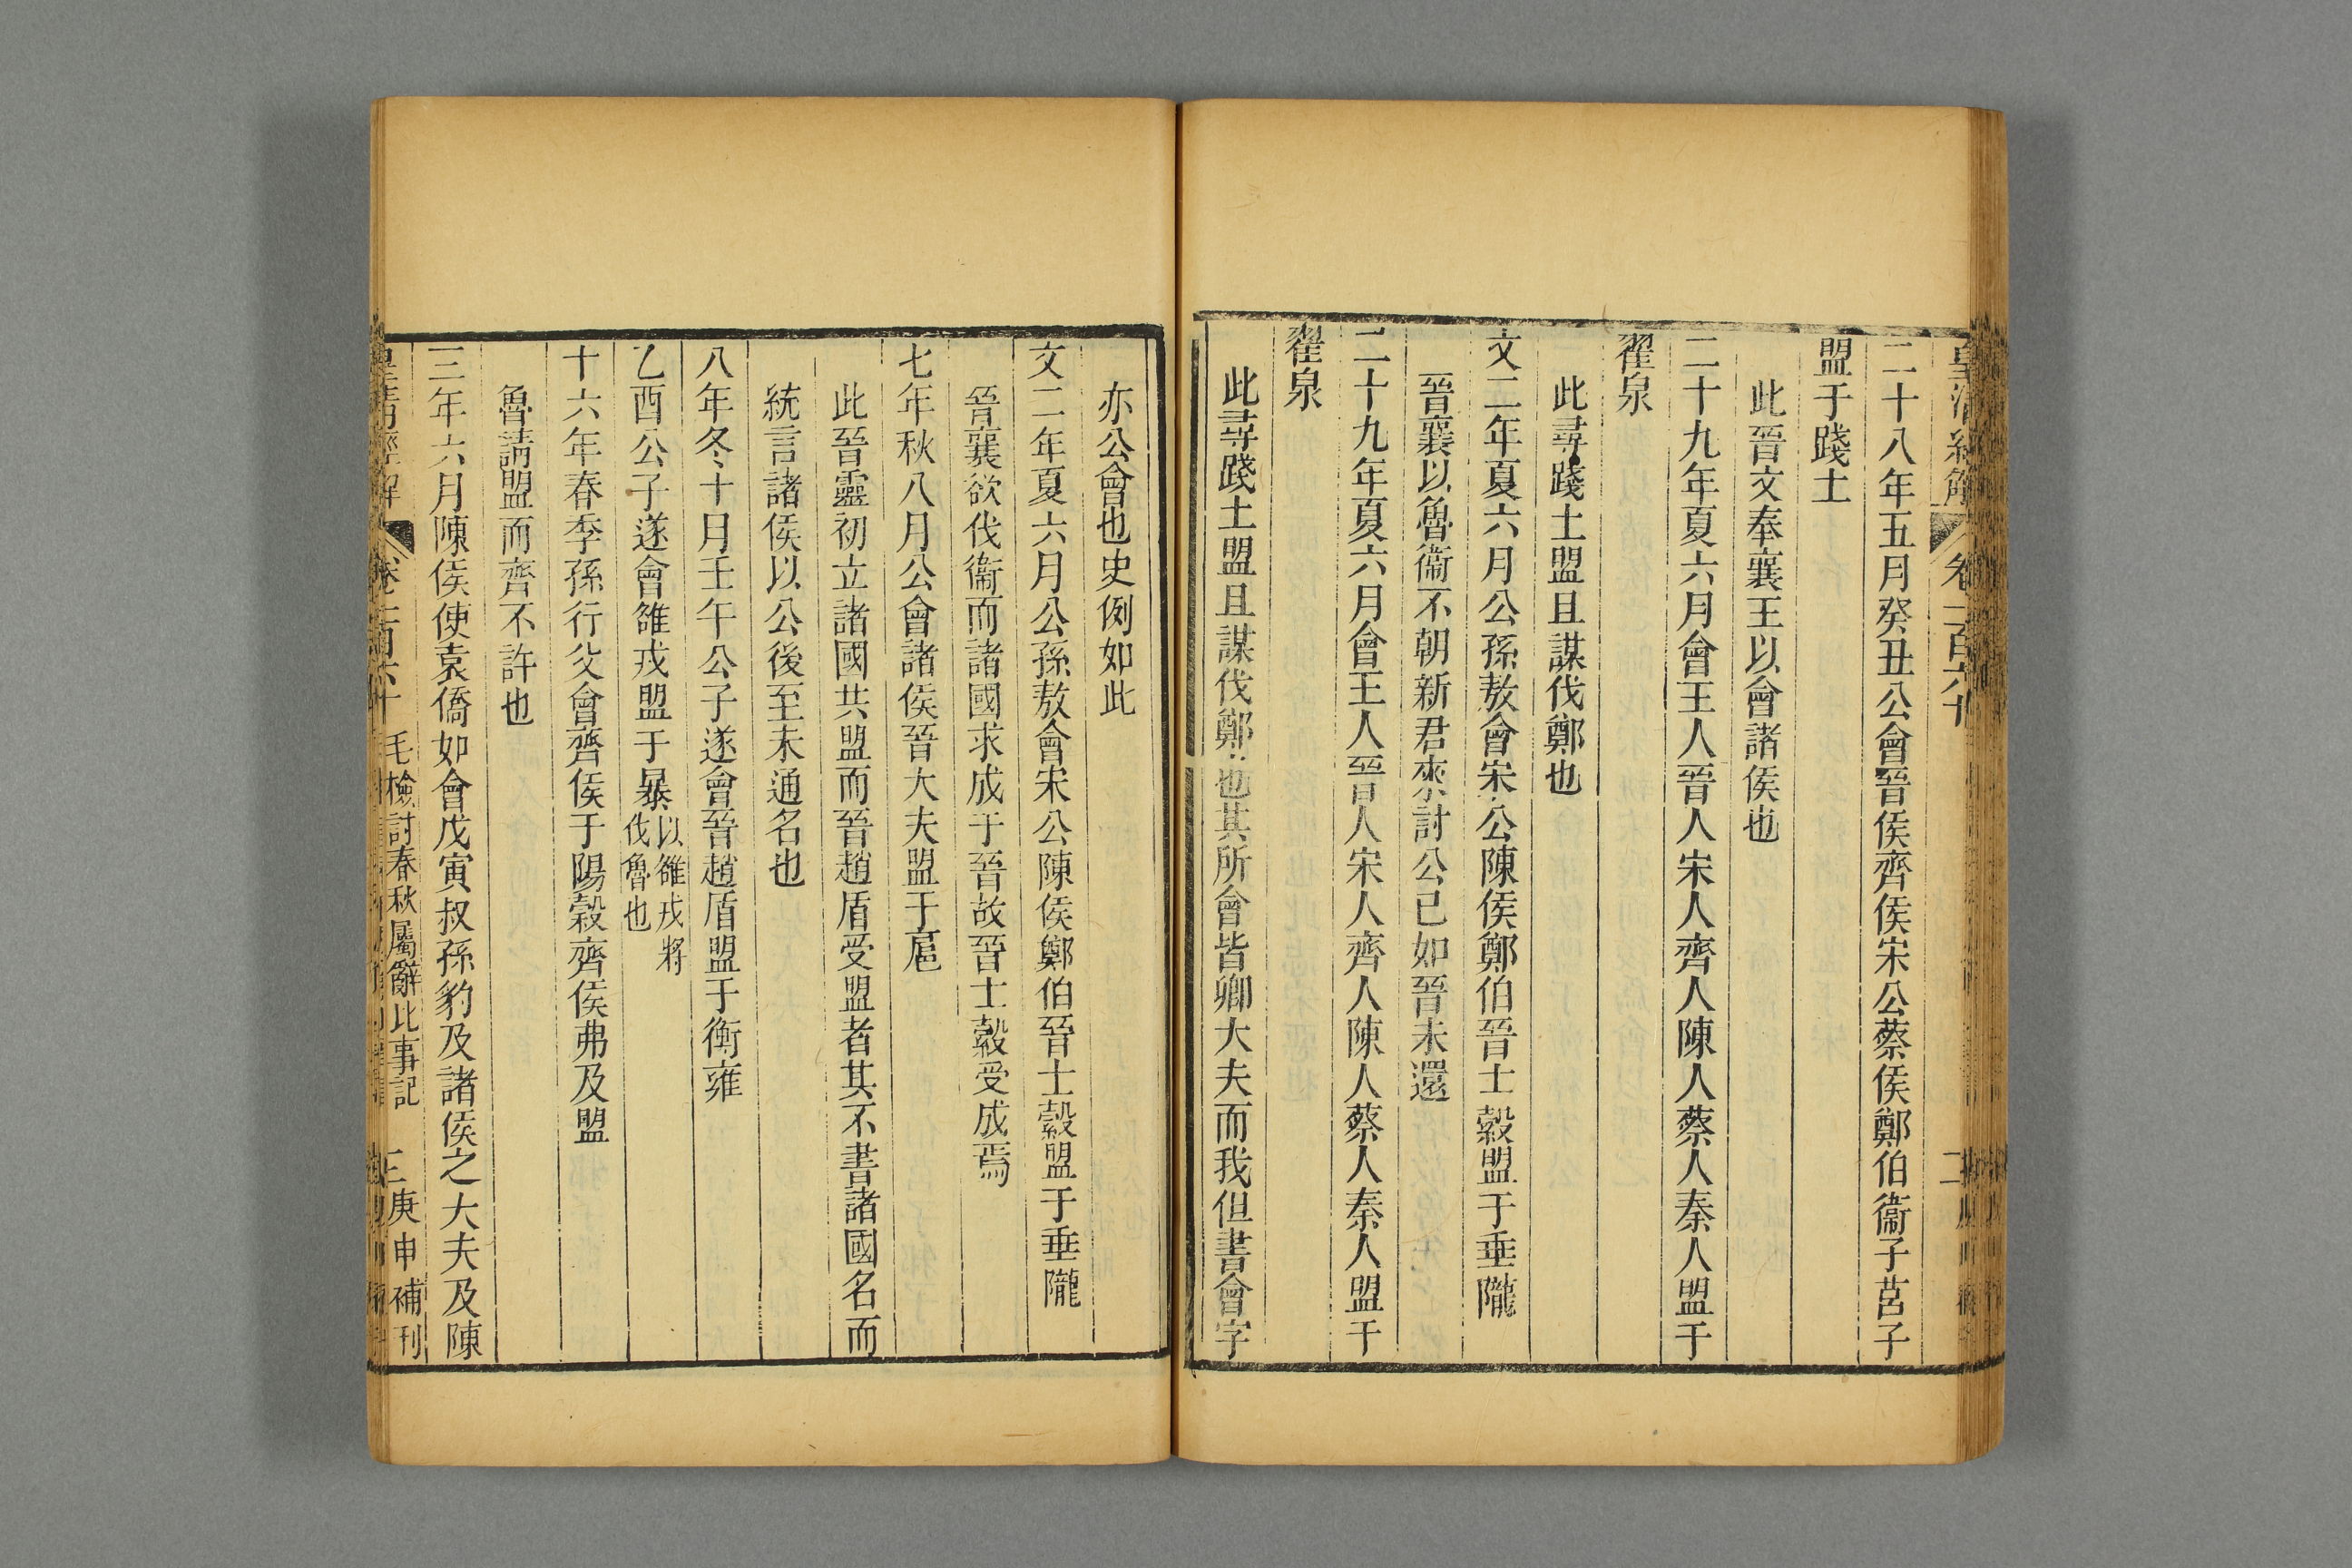 皇清經解 卷一百六十 二
二十八年五月癸丑公會晉侯齊侯宋公蔡侯鄭伯衞子莒子
盟于踐土
此晉文奉襄王以會諸侯也
二十九年夏六月會王人晉人宋人齊人陳人蔡人秦人盟于
翟泉
此尋踐土盟且謀伐鄭也
文二年夏六月公孫敖會宋公陳侯鄭伯晉士縠盟于垂隴
晉襄以魯衞不朝新君來討公已如晉未還
二十九年夏六月會王人晉人宋人齊人陳人蔡人秦人盟于
翟泉
此尋踐土盟且謀伐鄭也其所會皆卿大夫而我但書會字
亦公會也史例如此
文二年夏六月公孫敖會宋公陳侯鄭伯晉士縠盟于垂隴
晉襄欲伐衞而諸國求成于晉故晉士縠受成焉
七年秋八月公會諸侯晉大夫盟于扈
此晉靈初立諸國共盟而晉趙盾受盟者其不書諸國名而
統言諸侯以公後至未通名也
八年冬十月壬午公子遂會晉趙盾盟于衡雍
乙酉公子遂會雒戎盟于暴以雒戎將伐魯也
十六年春季孫行父會齊侯于陽穀齊侯弗及盟
魯請盟而齊不許也
三年六月陳侯使袁僑如會戊寅叔孫豹及諸侯之大夫及陳
皇清經解 卷一百六十 毛檢討春秋屬辭比事記 三 庚申補刊